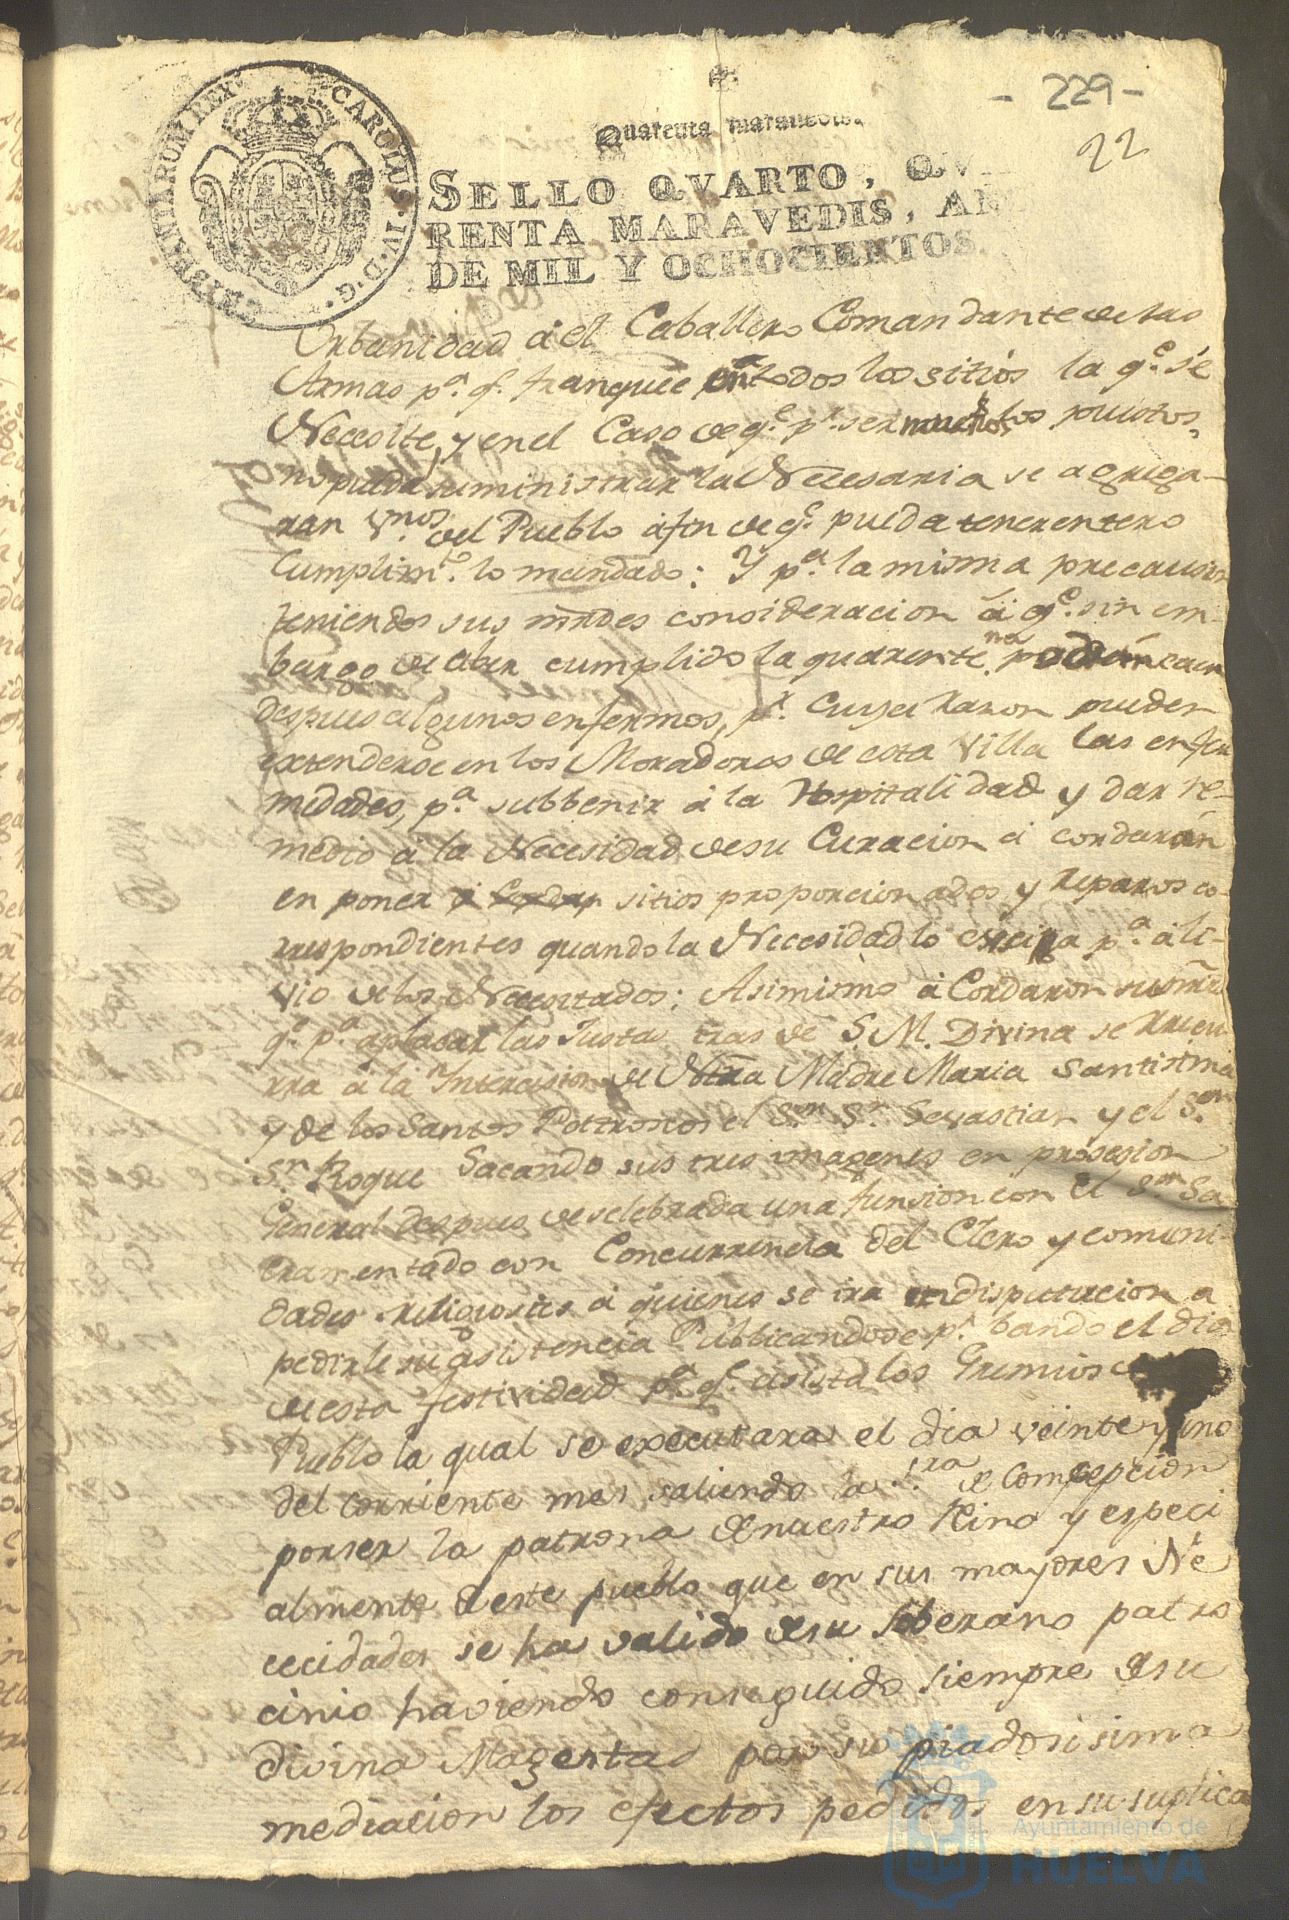 - 229 -
22
Quarenta maravedis.
SELLO QVARTO, QV
RENTA MARAVEDIS, AÑ
DE MIL Y OCHOCIENTOS.
CAROLUS·IV·D·G· HISPANIARUM REX
Urbanidad á el Caballero Comandante de las
Armas pa. qe. franquee en todos los sitios la qe. se
Necesite, y en el Caso de qe. pr. ser muchos los puestos,
no pueda suministrar la Necesaria se agrega-
ran vnos. del Pueblo á fin de qe. pueda tener entero
Cumplimto. lo mandado: Y pa. la misma precausion
teniendo sus mrdes consideracion á qe. sin em-
bargo de aber cumplido la quarentena. podrán caer
despues algunos enfermos, pr. cuya razon pueden
extenderse en los Moradores de esta Villa las enfer
midades, pa. subbenir á la Hospitalidad y dar re-
medio á la Necesidad de su Curacion acordarán
en poner sitios proporcionados y reparos co-
rrespondientes quando la Necesidad lo esija pa. ali-
vio de los Necesitados: Asimismo á Cordaron sus mrds
qe. pa. aplacar las Justas Iras de S. M. Divina se recu-
rra á la Intercesion de Ntra Madre Maria Santisima
y de los Santos Pattronos el Sor. Sn. Sevastian y el Sor
Sn. Roque Sacando sus tres imagenes en prosesion
General despues de selebrada una funsion con el Sor. Sa-
cramentado con Concurrencia del Clero y comuni-
dades religiosas á quienes se ira en disputacion a
pedirle su asistencia Publicandose pr. bando el dia
de esta festividad pa. qe. asista los Gremios
Pueblo la qual se executara el dia veinte y uno
del corriente mes saliendo la Sra. de Comcepcion
por ser la patrona de nuestro Reino y especi
almente de este pueblo que en sus mayores Ne
cecidades se ha valido de su soberano patro
cinio haviendo conseguido siempre de su
divina Magestad por su piadosisima
mediacion los efectos pedidos en su suplica
Ayuntamiento de
HUELVA